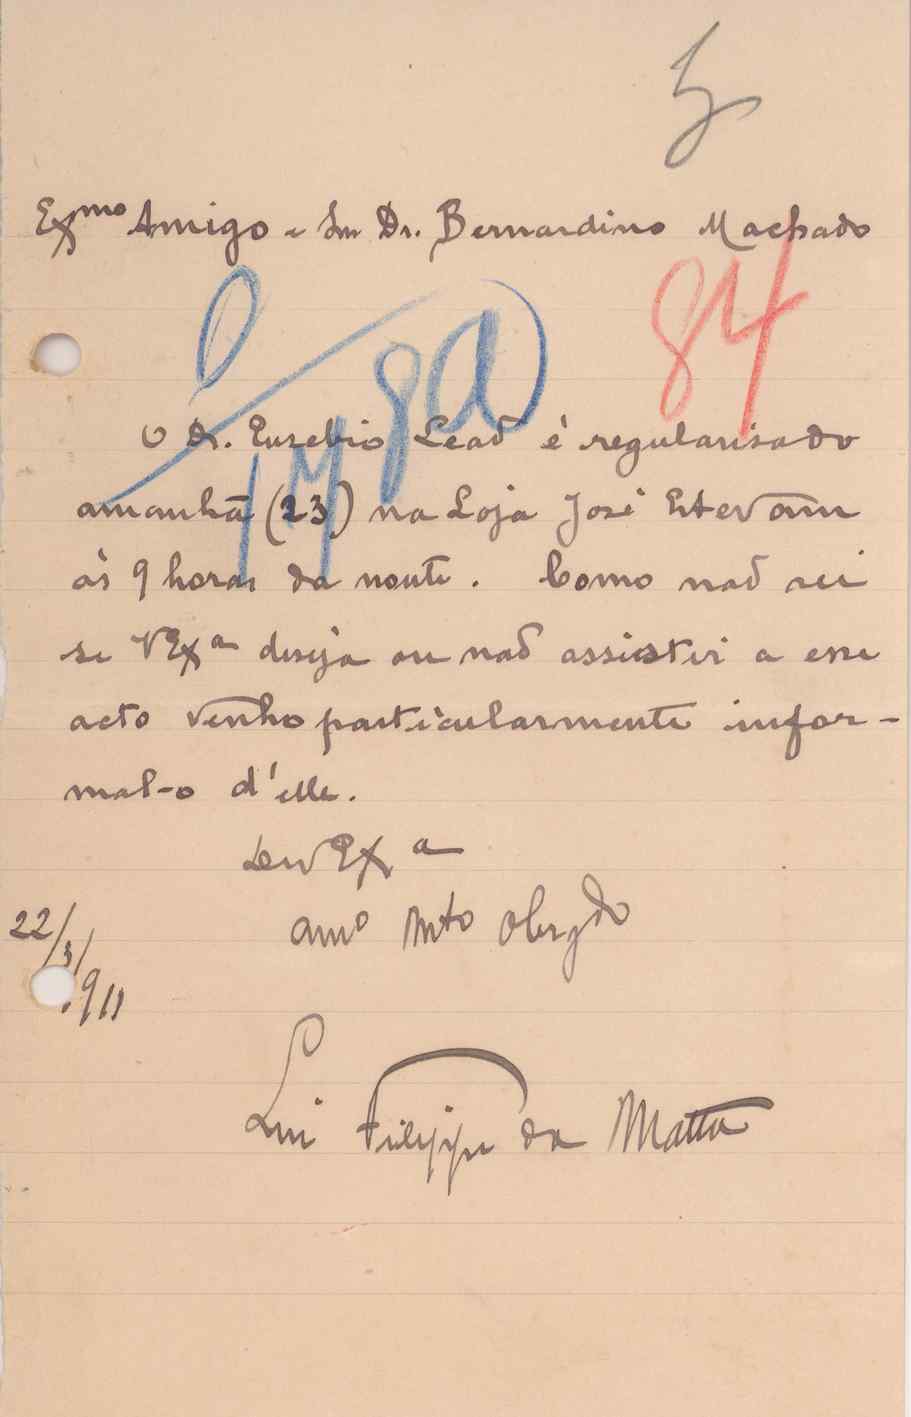 Exmo Amigo e Snr Dr. Bernardino Machado
84
O Dr. Eusebio Leaõ é regularisado
amanhã (23) na Loja José Estevam
ás 9 horas da noute. Como naõ sei
se VExª deseja ou naõ assistir a esse
acto venho particularmente infor-
mal-o d'elle.
De VExª
amo Mto Obrgdo
22/3/911
Luiz Filippe da Matta